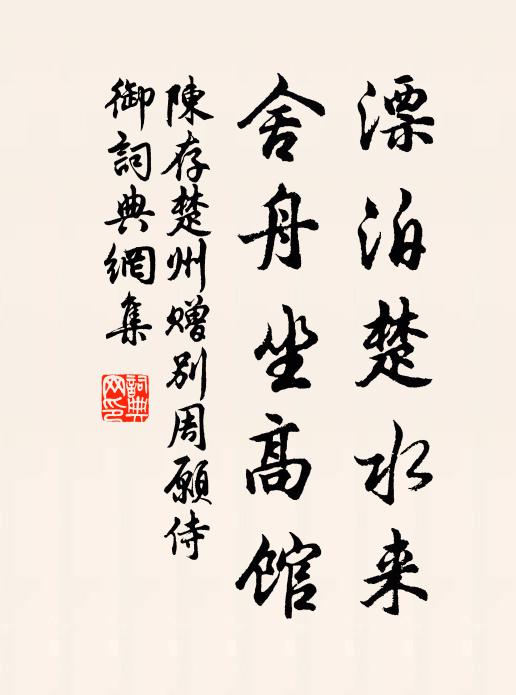 漂泊楚水来
舍舟坐高馆
陳存楚州赠别周願侍
御詞典網集
詞典
网印